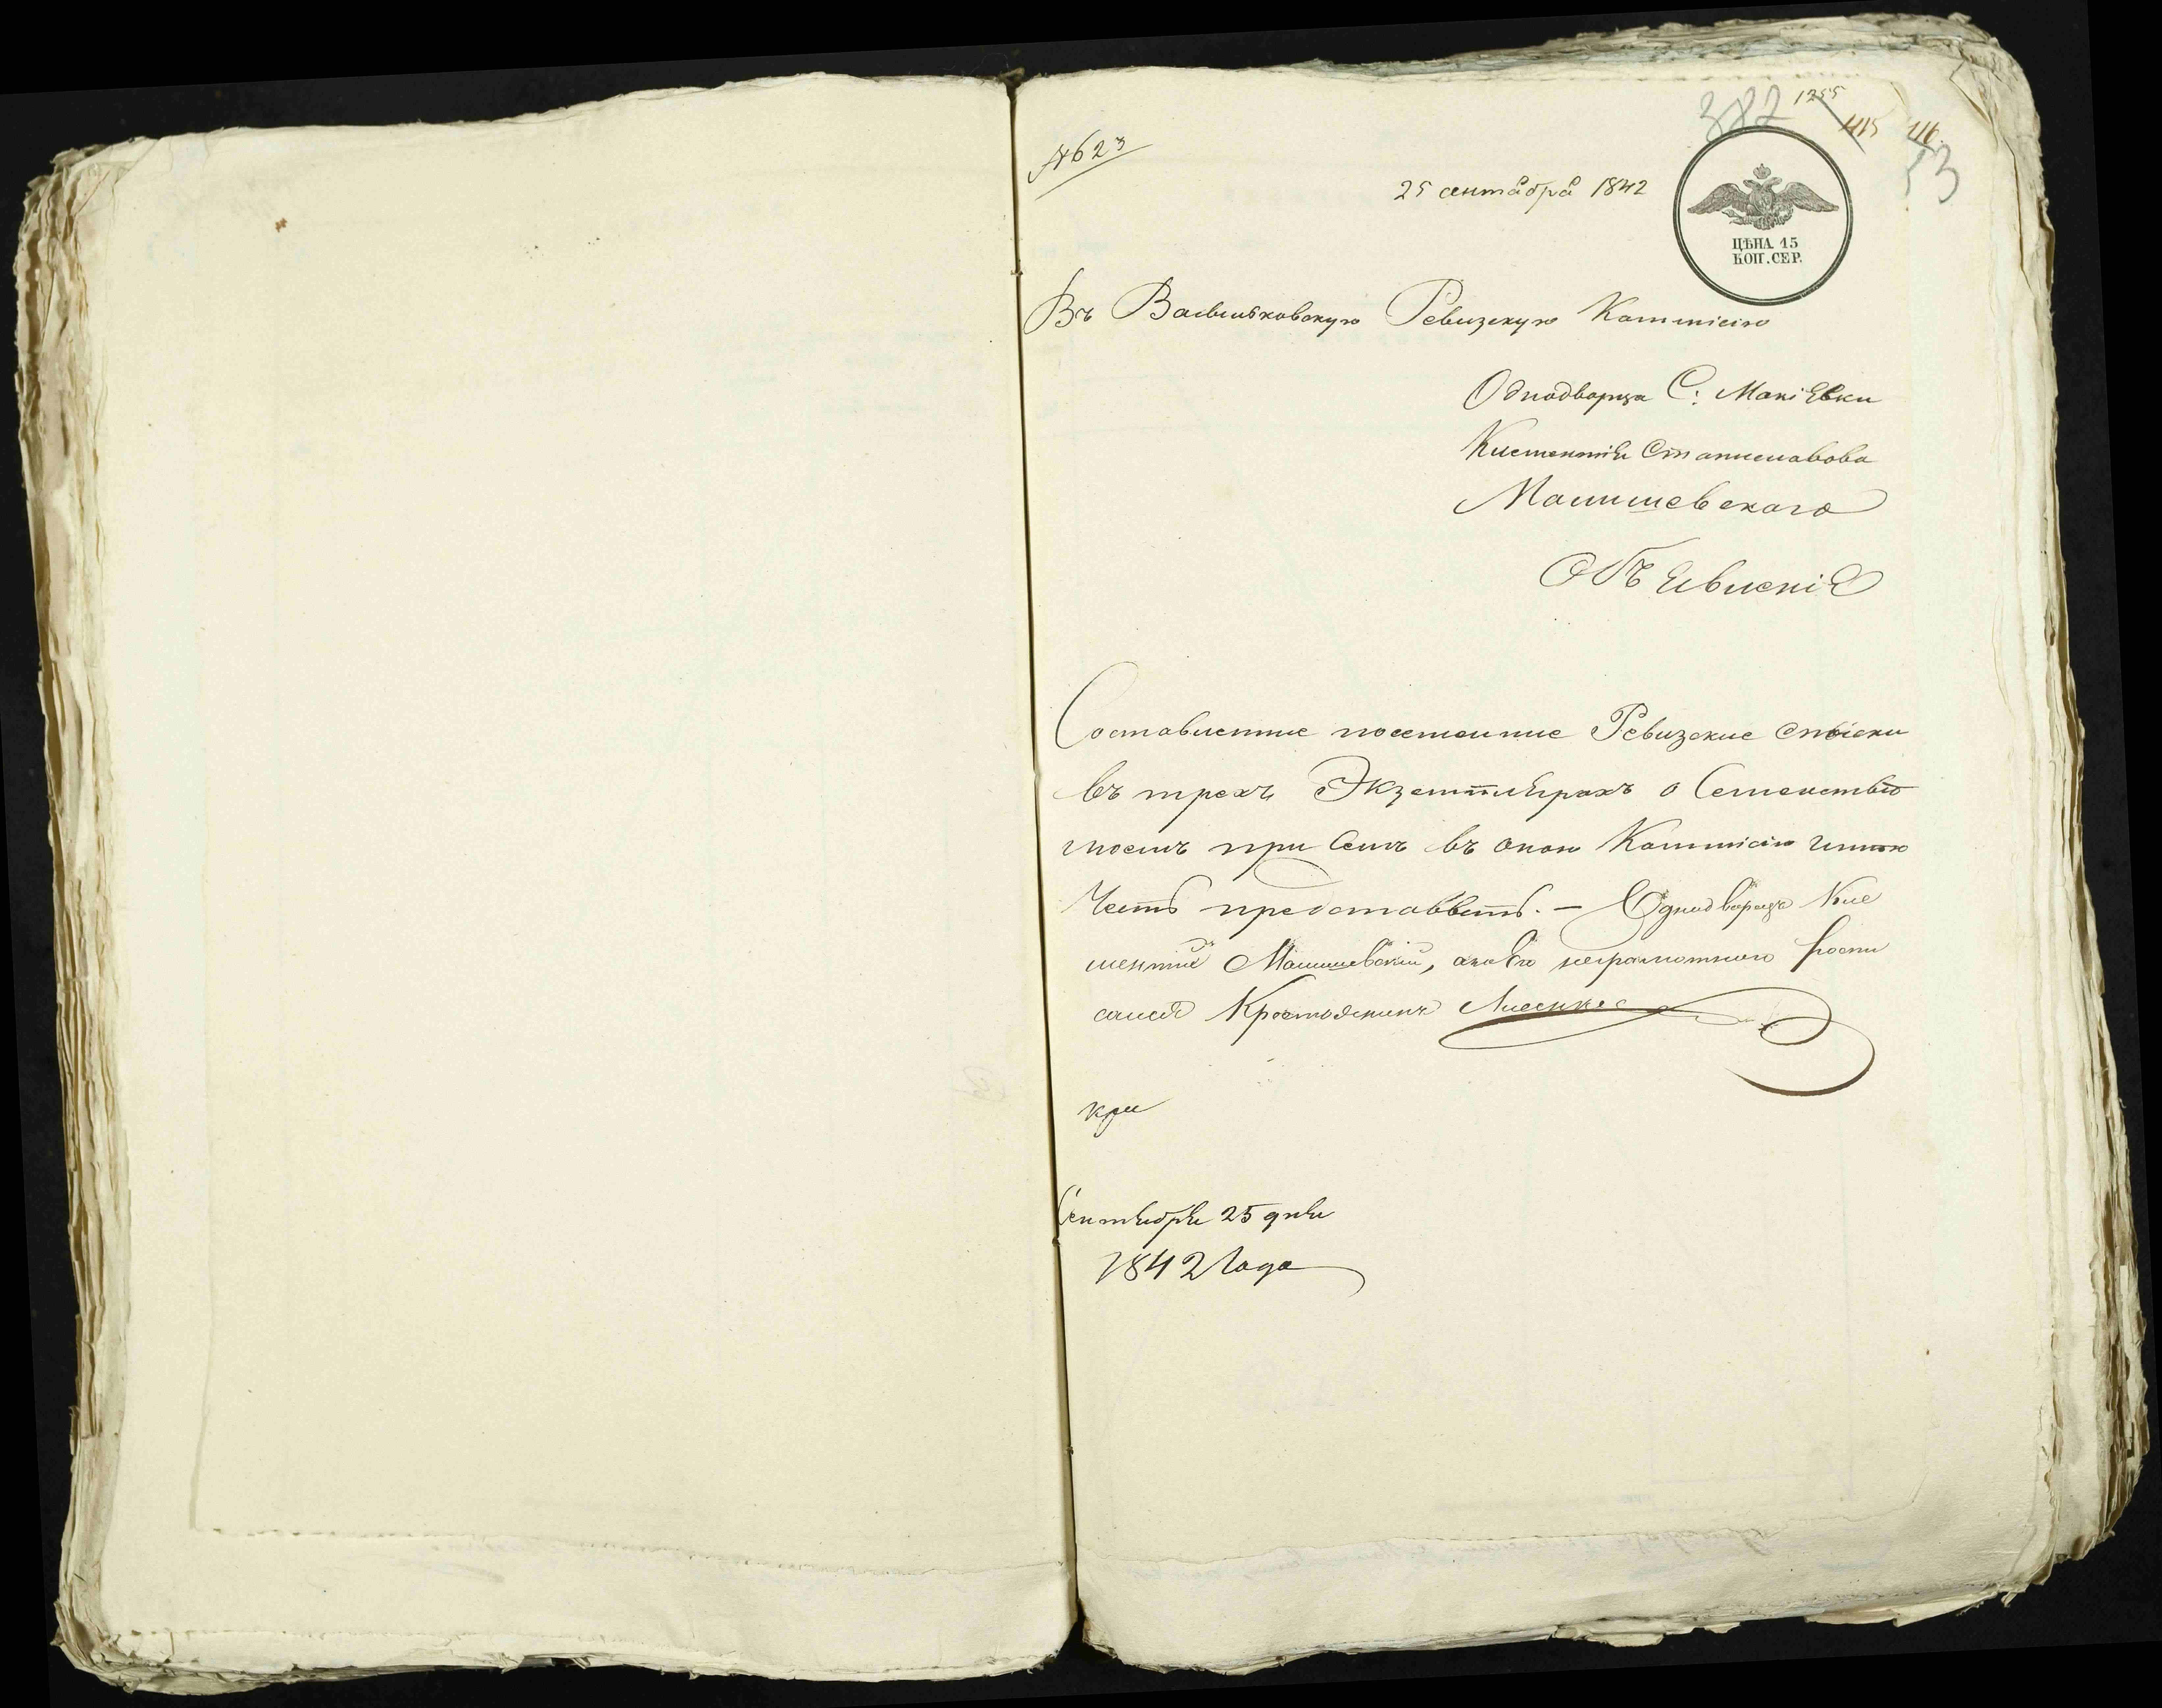 № 623
382
1255
1115
116.
53
25 сентября 1842
ЦѢНА 15
КОП. СЕР.
Въ Васильковскую Ревизскую Коммисію
Однодворца С: Макіевки
Климентія Станиславова
Малишевскаго
Объявленіе
Составленные посемейные Ревизские списки
въ трехъ Экземплярахъ о Семействѣ
моемъ при семъ въ оною Коммисію имею
Честь представить. — Однодворецъ Кле
ментий Малишевский, а за его неграмотного роспи
сался Крестьянинъ
кри
Сентября 25 дня
1842 Года